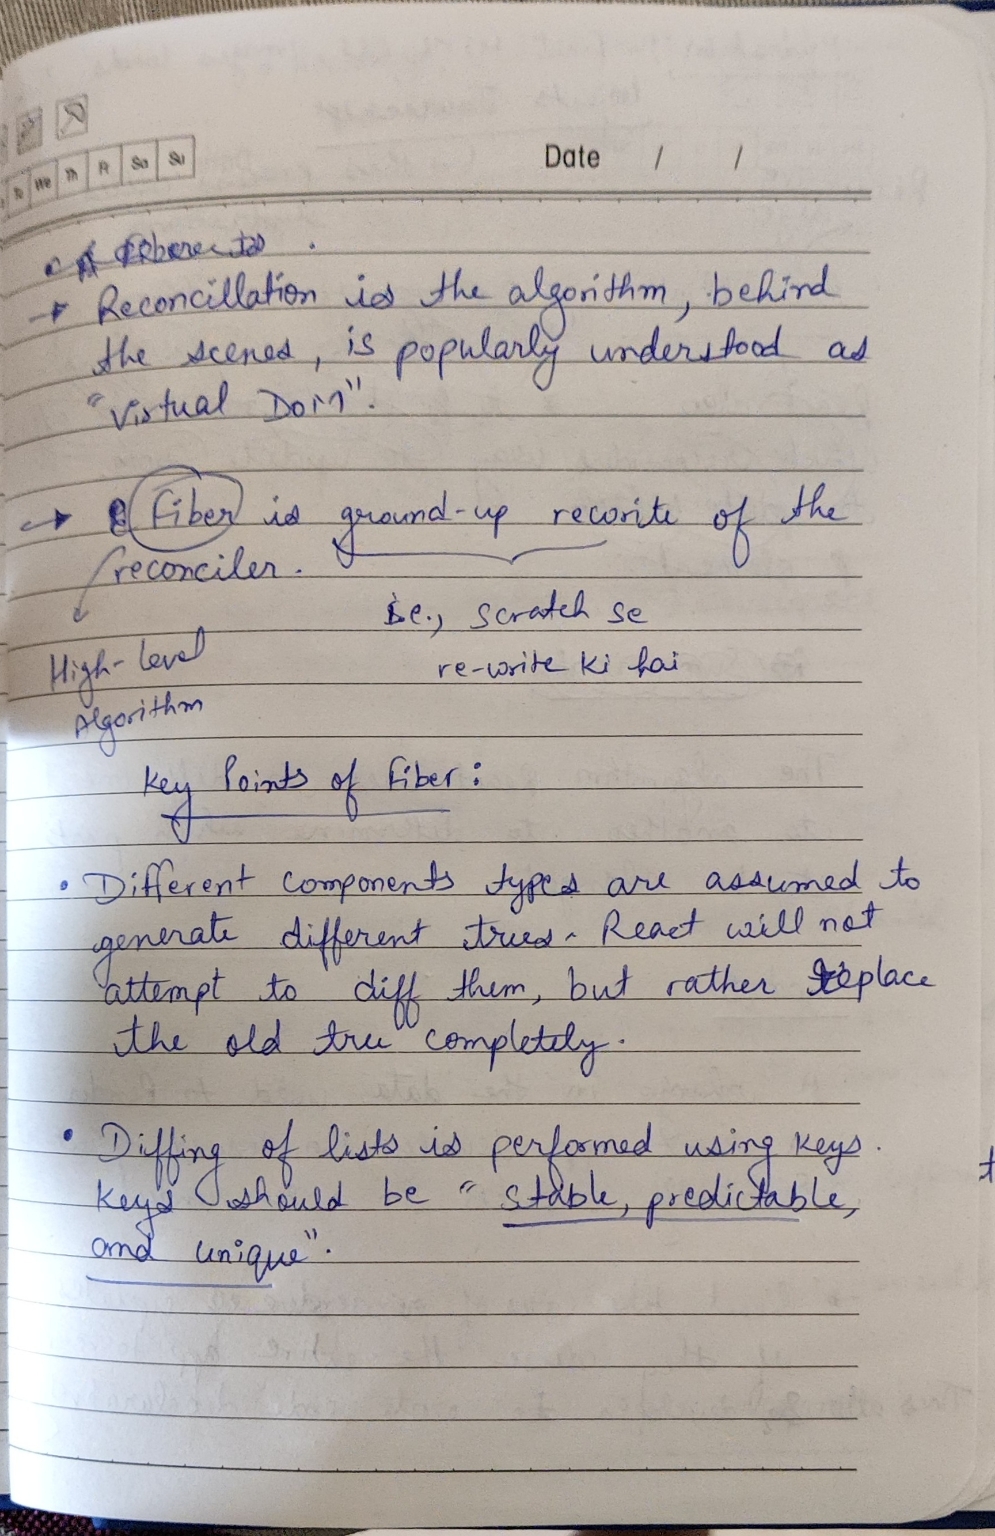 Tu We Th Fr Sa Su
Date / /
→ Reconcillation is the algorithm, behind
the scenes, is popularly understood as
"Virtual Dom".
→ Fiber is ground-up rewrite of the
reconciler.
i.e., scratch se
High-level
re-write ki hai
Algorithm
Key Points of Fiber:
• Different components types are assumed to
generate different trees. React will not
attempt to diff them, but rather replace
the old tree completely.
• Diffing of lists is performed using keys.
Keys should be "stable, predictable,
and unique".